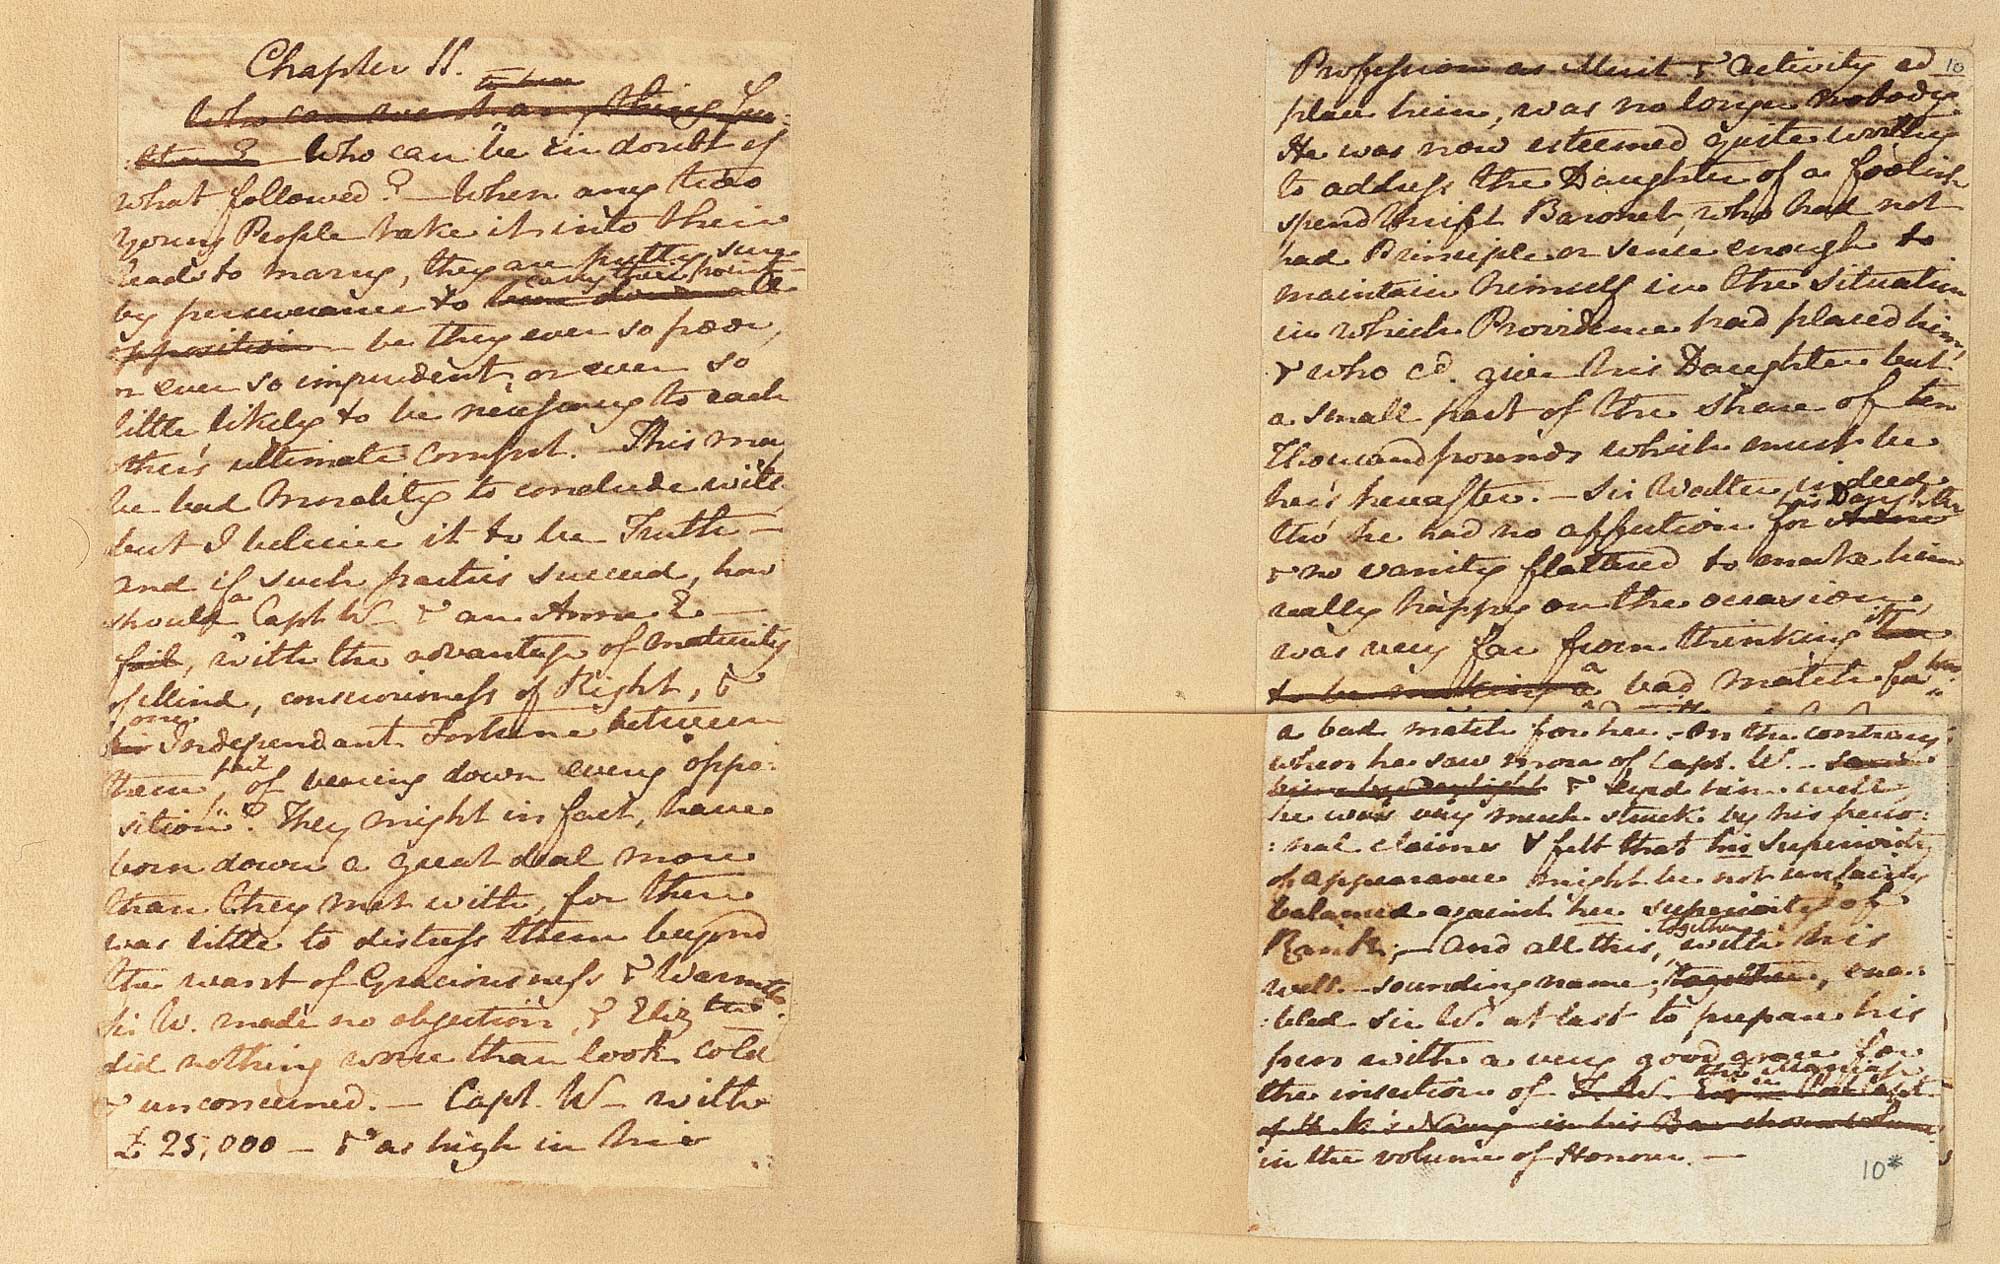 Chapter 11.
to hear
Who can want any thing fur:
:ther? Who can be in doubt of
what followed? — When any two
young People take it into their
heads to marry, they are pretty sure
carry their point—
by perseverance to bear down all
opposition — be they ever so poor,
or ever so imprudent, or ever so
little likely to be necessary to each
other's ultimate comfort. This may
be bad Morality to conclude with,
but I beleive it to be Truth —
and if such parties succeed, how
should a Capt W— & an Anne E—
fail, with the advantage of maturity
of Mind, consciousness of Right, &
one
Independant Fortune between
them, fail of bearing down every oppo:
:sition? They might in fact, have
born down a great deal more
than they met with, for there
was little to distress them beyond
the want of Graciousness & Warmth.
Sir W. made no objection, & Eliz:th
did nothing worse than look cold
& unconcerned. — Capt. W— with
£25,000 — & as high in his
Profession as Merit & Activity cd
10
place him, was no longer nobody.
He was now esteemed quite worthy
to address the Daughter of a foolish
spendthrift Baronet, who had not
had Principle or sense enough to
maintain himself in the Situation
in which Providence had placed him,
& who cd. give his Daughter but
a small part of the share of ten
Thousand pounds which must be
her's hereafter. — Sir Walter indeed
his Daughter
tho' he had no affection for Anne
& no vanity flattered to make him
really happy on the occasion,
was very far from thinking it
to be making a bad match for her.
a bad match for her. On the contrary
when he saw more of Capt. W. —
him by Daylight & eyed him well,
he was very much struck by his perso:
:nal claims & felt that his Superiority
of appearance might be not unfairly
balanced against her superiority of
Rank; — and all this, together with his
well-sounding name, together, ena:
:bled Sir W. at last to prepare his
pen with a very good grace for
the Marriage
the insertion of
in the volume of Honour. —
10*